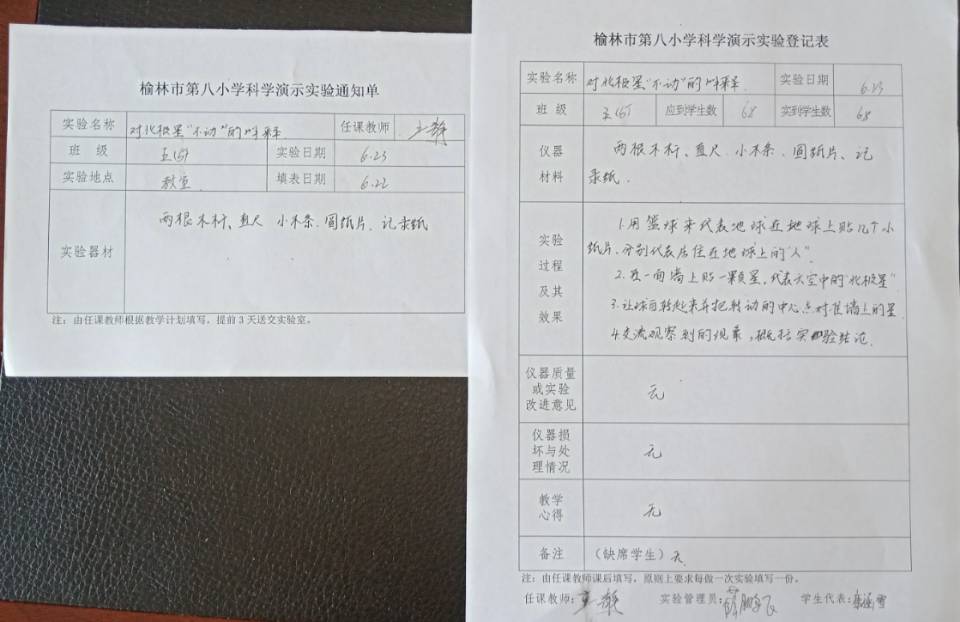 榆林市第八小学科学演示实验通知单
实验名称 对北极星"不动"的解释 任课教师
班 级 五(5) 实验日期 6.23
实验地点 教室 填表日期 6.22
实验器材
两根木杆、直尺 小木条、圆纸片、记录纸
注:由任课教师根据教学计划填写,提前3天送交实验室。
榆林市第八小学科学演示实验登记表
实验名称 对北极星"不动"的解释 实验日期 6.23
班 级 五(5) 应到学生数 68 实到学生数 68
仪器
材料
两根木杆、直尺 小木条、圆纸片、记
录纸.
实验
过程
及其
效果
1.用篮球来代表地球在地球上贴几个小
纸片、分别代表居住在地球上的"人"
2.在一面墙上贴一颗星,代表天空中的"北极星"
3.让球自转起来并把转动的中心点对准墙上的星
4.交流观察到的现象,概括实验结论.
仪器质量
或实验
改进意见
无
仪器损
坏与处
理情况
无
教学
心得
无
备注 (缺席学生)无
注:由任课教师课后填写,原则上要求每做一次实验填写一份。
任课教师: 实验管理员: 学生代表: